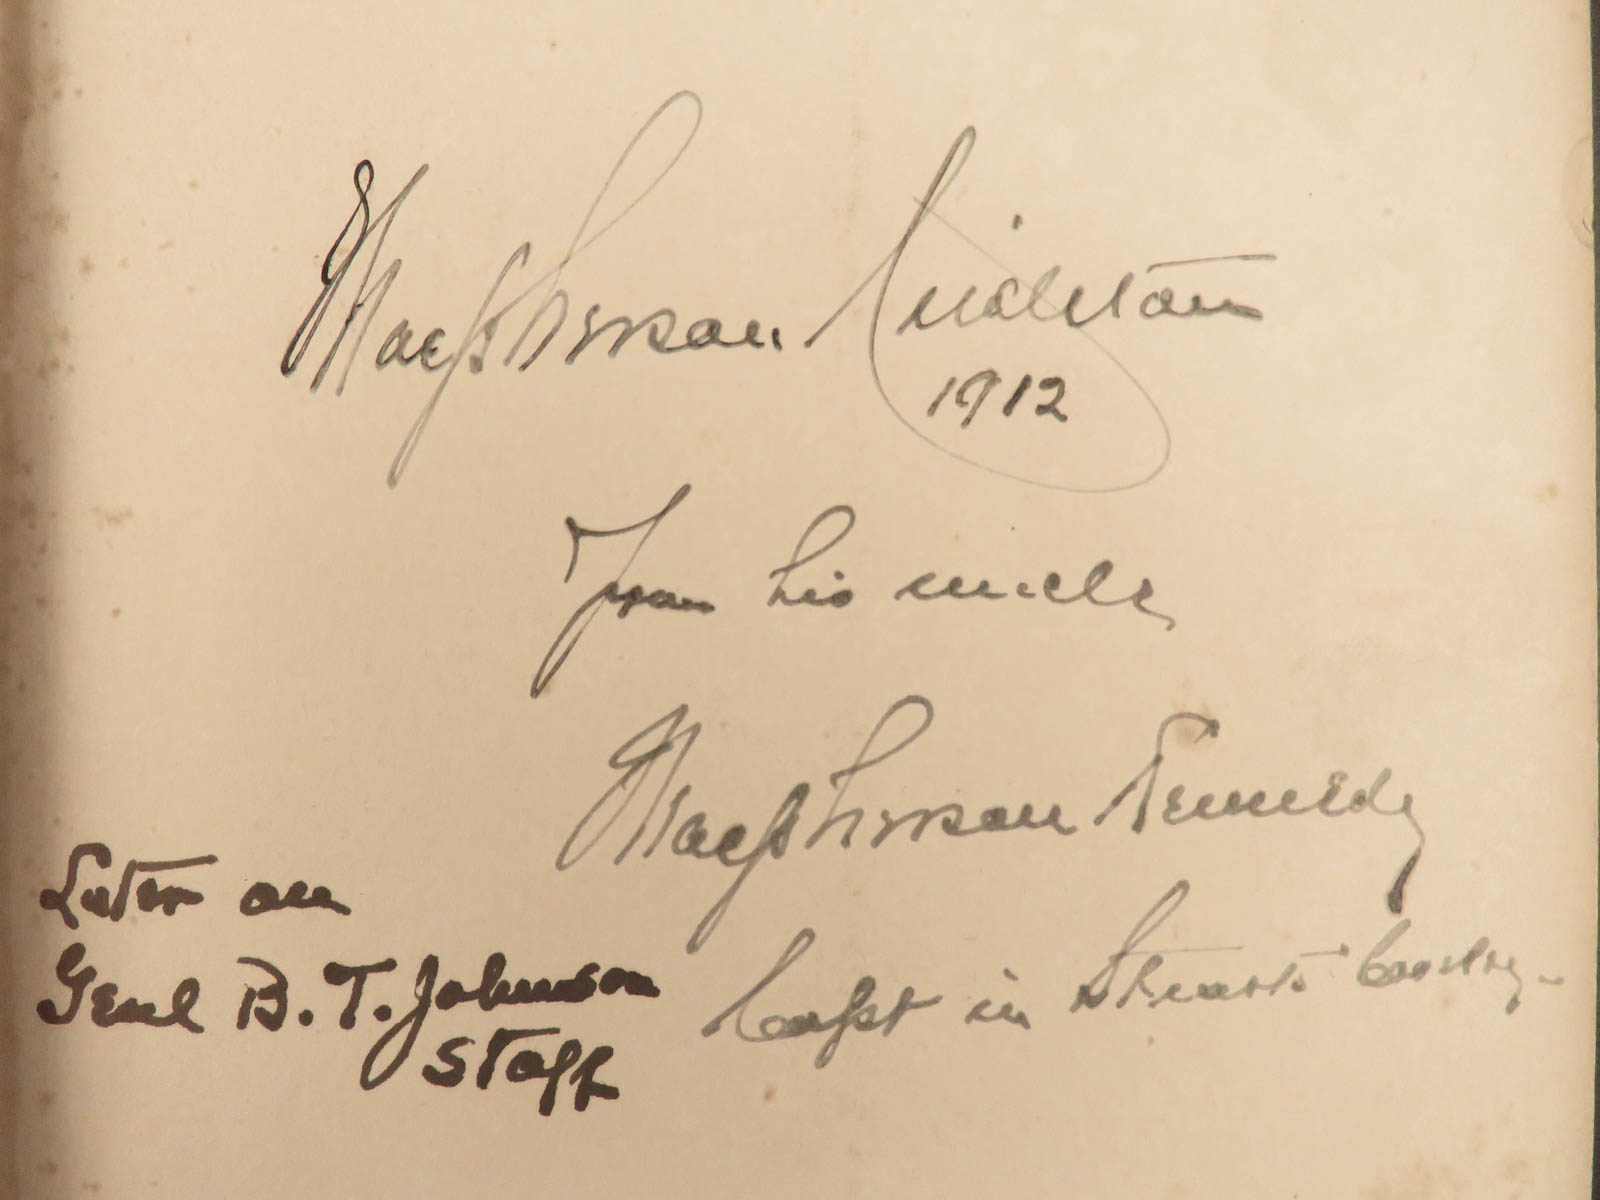 Macpherson
1912
From his uncle
Macpherson Kennedy
Capt in Stuarts Cavalry -
Later on
Genl B. T. Johnson
Staff